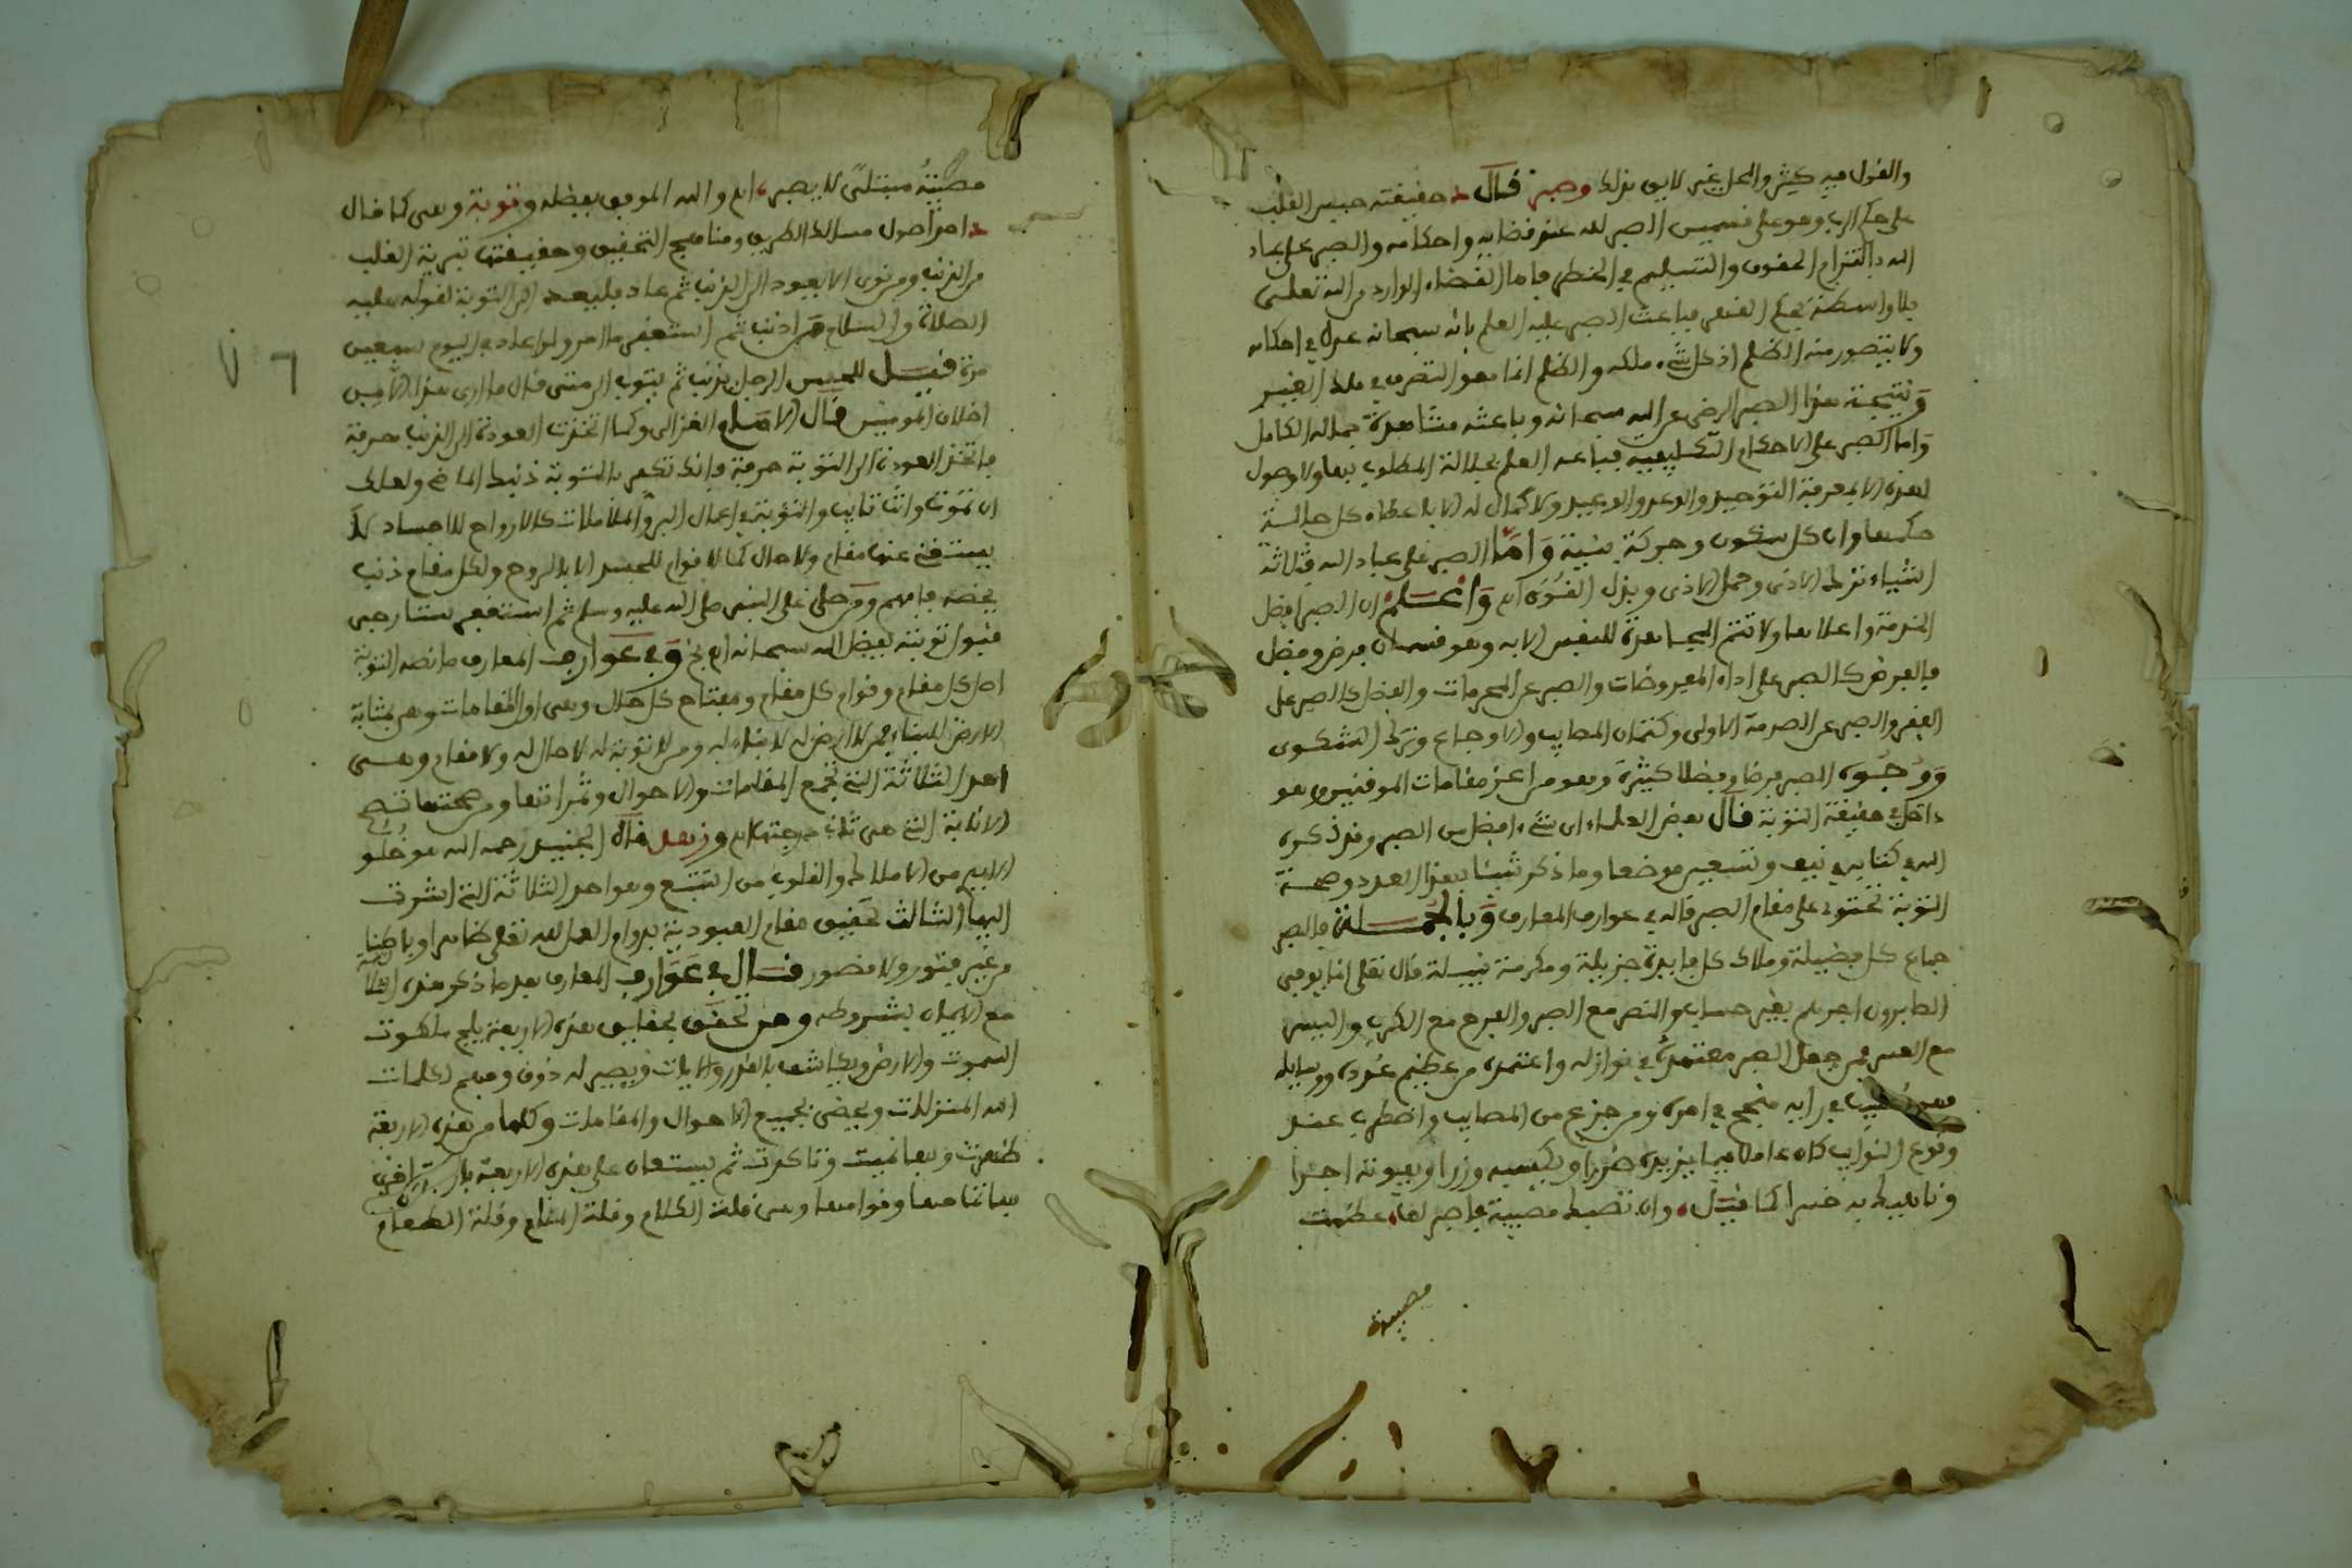 والقول فيه كثير والمحل غير لايق بذلك وصبر قال د حقيقته حبس القلب
على حكم الرب وهو على قسمين الصبر لله عند قضايه واحكامه والصبر على عباد
الله بالتزام الحقوق والتسليم في الخطر فاما القضاء الوارد من الله تعلى
بلا واسطة فباعث الصبر عليه العلم بانه سبحانه عدل في احكامه
ولا يتصور منه الظلم اذ كل شيء ملكه والظلم انما هو التصرف في ملك الغير
ونتيجة هذا الصبر الرضى عن الله سبحانه وباعثه مشاهدة جماله الكامل
واما الصبر على الاحكام التكليفية العلم بجلالة المطلوب بها ولا وصول
لهذه الا بمعرفة التوحيد والوعد والوعيد ولا كمال له الا باعطاء كل حالة
حكمها وان كل سكون وحركة بنية واما الصبر على عباد الله فثلاثة
اشياء ترك الاذى وحمل الاذى وبذل واعلم ان الصبر افضل
الخدمة واعلاها ولا تتم المجاهدة للنفس الا به وهو قسمان فرض وفضل
فالفرض كالصبر على اداء المفروضات والصبر عن المحرمات والفضل كالصبر على
الفقر والصبر عن الصدمة الاولى وكتمان المصايب والاوجاع وترك الشكوى
ووجوه الصبر فرضا وفضلا كثيرة وهو من اعز مقامات الموقنين وهو
داخل في حقيقة التوبة قال بعض العلماء اي شيء افضل من الصبر وقد ذكره
الله في كتابه في نيف وتسعين موضعا وما ذكر شيئا بهذا العدد وصحة
التوبة تحتوي على مقام الصبر قاله في عوارف المعارف وبالجملة فالصبر
جماع كل فضيلة وملاك كل فايدة جزيلة ومكرمة نبيلة قال تعلى انما يوفى
الصابرون اجرهم بغير حساب والنصر مع الصبر والفرج مع الكرب واليسر
مع العسر فمن جعل الصبر معتمده في نوازله واعتمده من عظيم عدده ووسايله
فهو مصيب في رايه منجح في امره ومن جزع من المصايب واضطرب عند
وقوع النوايب كان عاملا فيما يزيده ضررا ويكسبه وزرا ويفوته اجرا
وناهيك به خسرا كما قيل وان تصبك مصيبة فاصبر لها عظمت
مصيبة
مصيبة مبتلى لا يصبر اه والله الموفق بفضله وتوبة وهى كما قال
د احد اصول مسالك الطريق ومناهج التحقيق وحقيقتها تبرية القلب
من الذنب ومن نوى الا يعود الى الذنب ثم عاد فليعد الى التوبة لقوله عليه
الصلاة والسلام ما اصر ولو عاد في اليوم سبعين
مرة قيل للحسن الرجل يذنب ثم يتوب الى متى قال ما ارى هذا الا من
اخلاق المومنين قال الامام الغزالى وكما اتخذت العودة الى الذنب حرفة
فاتخذ العودة الى التوبة حرفة فانك تكفر بالتوبة ذنبك الماضي ولعلك
ان تموت وانت تايب والتوبة في اعمال البر والمقامات كالارواح للاجساد لا
يستغنى عنها مقام ولا حال كما لا قوام للجسد الا بالروح ولكل مقام ذنب
يخصه فافهم ومن صلى على النبي صلى الله عليه وسلم ثم استغفر
قبول توبته بفضل الله سبحانه وفي عوارف المعارف ما نصه التوبة
اصل كل مقام وقوام كل مقام ومفتاح كل حال وهى اول المقامات وهى بمثابة
الارض للبناء فمن لا ارض له لا بناء له ومن لا توبة له لا حال له ولا مقام وهى
احد الثلاثة التى تجمع المقامات والاحوال وثمراتها ومن صحتها تصح
الانابة التى هى ثانى وزهد قال الجنيد رحمه الله هو خلو
الايدى من الاملاك والقلوب من التتبع وهو احد الثلاثة التى اشرت
اليها الثالث تحقيق مقام العبودية بدوام العمل لله تعلى ظاهرا وباطنا
من غير فتور ولا قصور قال في عوارف المعارف بعد ما ذكر هذه الثلاثة
مع الايمان بشروطه ومن تحقق بحقايق هذه الاربعة يلج ملكوت
السموت والارض ويكاشف بالقدر والايات ويصير له ذوق وفهم لكلمات
الله المنزلات ويحضى بجميع الاحوال والمقامات وكلها من هذه الاربعة
ظهرت وبها تهيت وتاكدت ثم يستعان على هذه الاربعة باربعة اخرى
بها تمامها وقوامها وهى قلة الكلام وقلة المنام وقلة الطعام